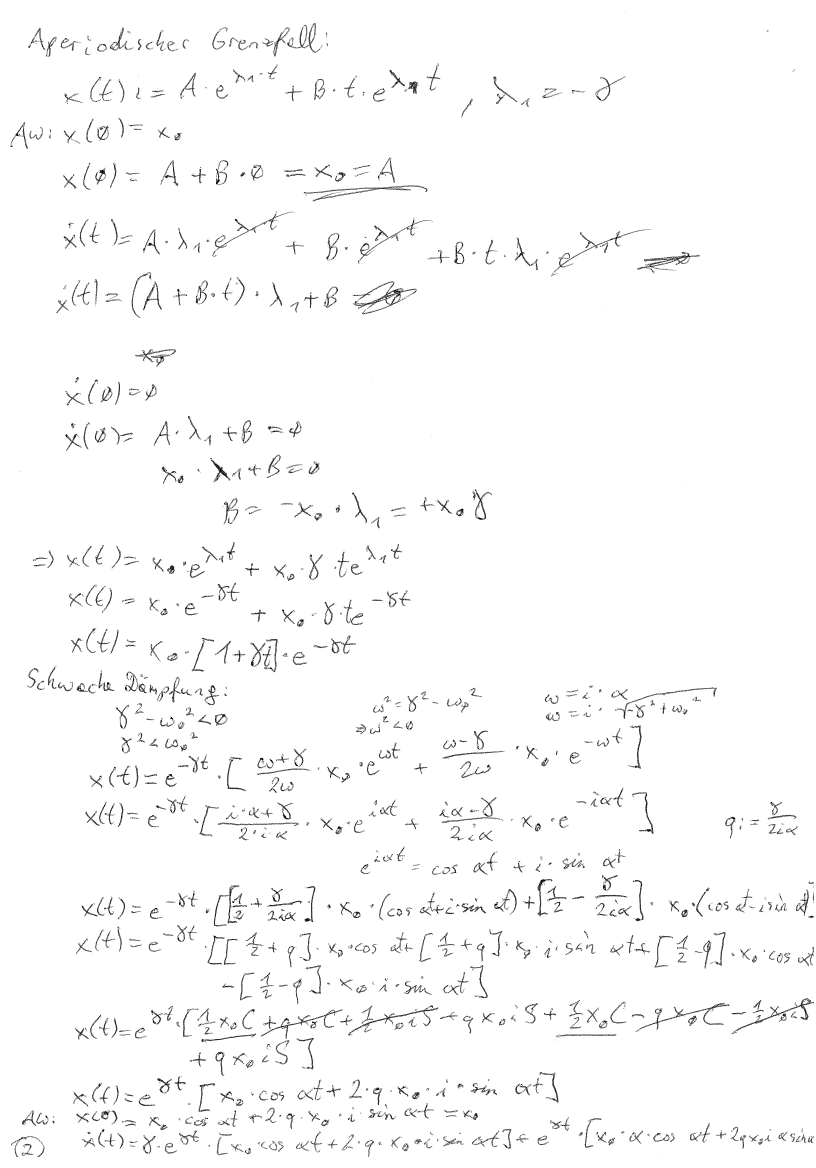 Aperiodischer Grenzfall:
x(t) := A·e^{λ₁·t} + B·t·e^{λ₁t} , λ₁ = -γ
AW: x(0) = x₀
x(0) = A + B·0 = x₀ = A
ẋ(t) = A·λ₁·e^{λ₁t} + B·e^{λ₁t} + B·t·λ₁·e^{λ₁t}
ẋ(t) = (A + B·t)·λ₁ + B
x₀
ẋ(0) = 0
ẋ(0) = A·λ₁ + B = 0
x₀·λ₁ + B = 0
B = -x₀·λ₁ = +x₀γ
=> x(t) = x₀·e^{λ₁t} + x₀·γ·te^{λ₁t}
x(t) = x₀·e^{-γt} + x₀·γ·te^{-γt}
x(t) = x₀·[1+γt]·e^{-γt}
Schwache Dämpfung:
γ² - ω₀² < 0 ω² = γ² - ω₀² ω = i·α
γ² < ω₀² => ω² < 0 ω = i·√(-γ² + ω₀²)
x(t) = e^{-γt}·[(ω+γ)/(2ω)·x₀·e^{ωt} + (ω-γ)/(2ω)·x₀·e^{-ωt}]
x(t) = e^{-γt}·[(i·α+γ)/(2·i·α)·x₀·e^{iαt} + (iα-γ)/(2iα)·x₀·e^{-iαt}] q := γ/(2iα)
e^{iαt} = cos αt + i·sin αt
x(t) = e^{-γt}·[[1/2 + γ/(2iα)]·x₀·(cos αt+i·sin αt) + [1/2 - γ/(2iα)]·x₀·(cos αt-i sin αt)]
x(t) = e^{-γt}·[[1/2 + q]·x₀·cos αt + [1/2 + q]·x₀·i·sin αt + [1/2 - q]·x₀·cos αt
-[1/2 - q]·x₀·i·sin αt]
x(t) = e^{γt}·[1/2 x₀C + qx₀C + 1/2 x₀iS + qx₀iS + 1/2 x₀C - qx₀C - 1/2 x₀iS
+ qx₀iS]
x(t) = e^{γt}·[x₀·cos αt + 2·q·x₀·i·sin αt]
AW: x(0) = x₀·cos αt + 2·q·x₀·i·sin αt = x₀
(2) ẋ(t) = γ·e^{γt}·[x₀·cos αt + 2·q·x₀·i·sin αt] + e^{γt}·[x₀·α·cos αt + 2qx₀iα sin α